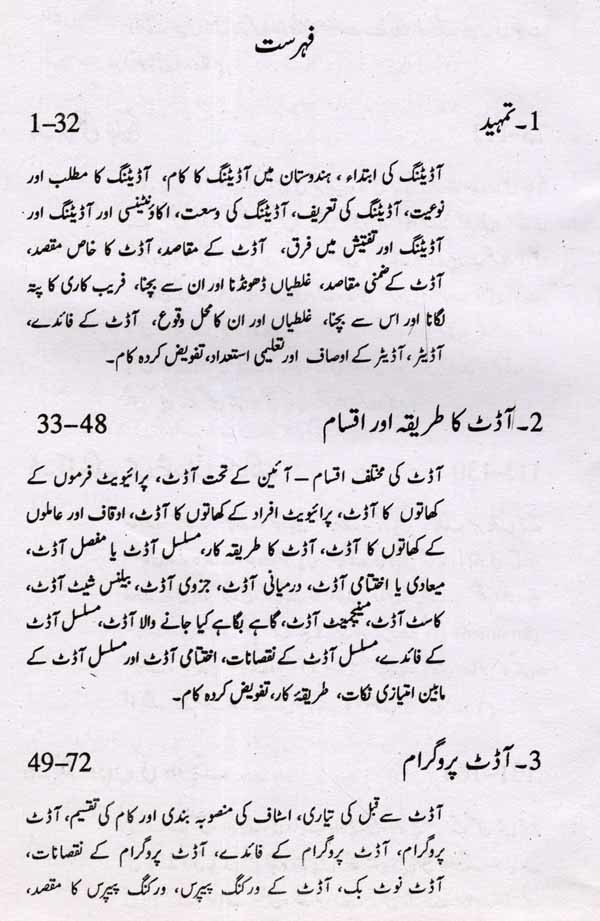 فہرست
1۔ تمہید 1–32
آڈیٹنگ کی ابتداء، ہندوستان میں آڈیٹنگ کا کام، آڈیٹنگ کا مطلب اور
نوعیت، آڈیٹنگ کی تعریف، آڈیٹنگ کی وسعت، اکاؤنٹینسی اور آڈیٹنگ اور
آڈیٹنگ اور تفتیش میں فرق، آڈٹ کے مقاصد، آڈٹ کا خاص مقصد،
آڈٹ کے ضمنی مقاصد، غلطیاں ڈھونڈنا اور ان سے بچنا، فریب کاری کا پتہ
لگانا اور اس سے بچنا، غلطیاں اور ان کا محل وقوع، آڈٹ کے فائدے،
آڈیٹر، آڈیٹر کے اوصاف اور تعلیمی استعداد، تفویض کردہ کام۔
2۔ آڈٹ کا طریقہ اور اقسام 33–48
آڈٹ کی مختلف اقسام – آئین کے تحت آڈٹ، پرائیویٹ فرموں کے
کھاتوں کا آڈٹ، پرائیویٹ افراد کے کھاتوں کا آڈٹ، اوقاف اور عاملوں
کے کھاتوں کا آڈٹ، آڈٹ کا طریقہ کار، مسلسل آڈٹ یا مفصل آڈٹ،
میعادی یا اختتامی آڈٹ، درمیانی آڈٹ، جزوی آڈٹ، بیلنس شیٹ آڈٹ،
کاسٹ آڈٹ، منیجمینٹ آڈٹ، گاہے بگاہے کیا جانے والا آڈٹ، مسلسل آڈٹ
کے فائدے، مسلسل آڈٹ کے نقصانات، اختتامی آڈٹ اور مسلسل آڈٹ کے
مابین امتیازی نکات، طریقۂ کار، تفویض کردہ کام۔
3۔ آڈٹ پروگرام 49–72
آڈٹ سے قبل کی تیاری، اسٹاف کی منصوبہ بندی اور کام کی تقسیم، آڈٹ
پروگرام، آڈٹ پروگرام کے فائدے، آڈٹ پروگرام کے نقصانات،
آڈٹ نوٹ بک، آڈٹ کے ورکنگ پیپرس، ورکنگ پیپرس کا مقصد،